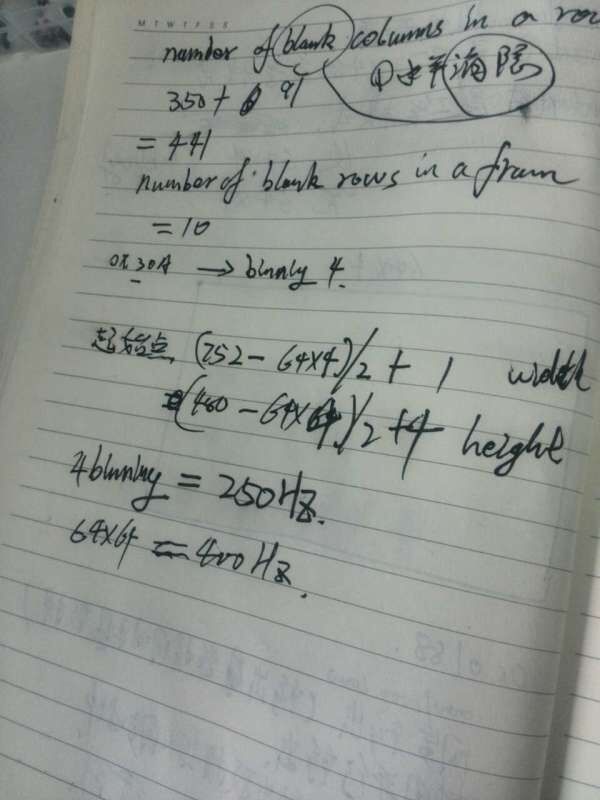 M T W T F S S
number of blank columns in a row
①水平消隐
350 + 91
= 441
number of blank rows in a fram
= 10
0x30A → binnly 4.
起始点 (752 - 64x4)/2 + 1 width
(480 - 64x4)/2 + 4 height
4 binnly = 250Hz.
64x64 = 400Hz.